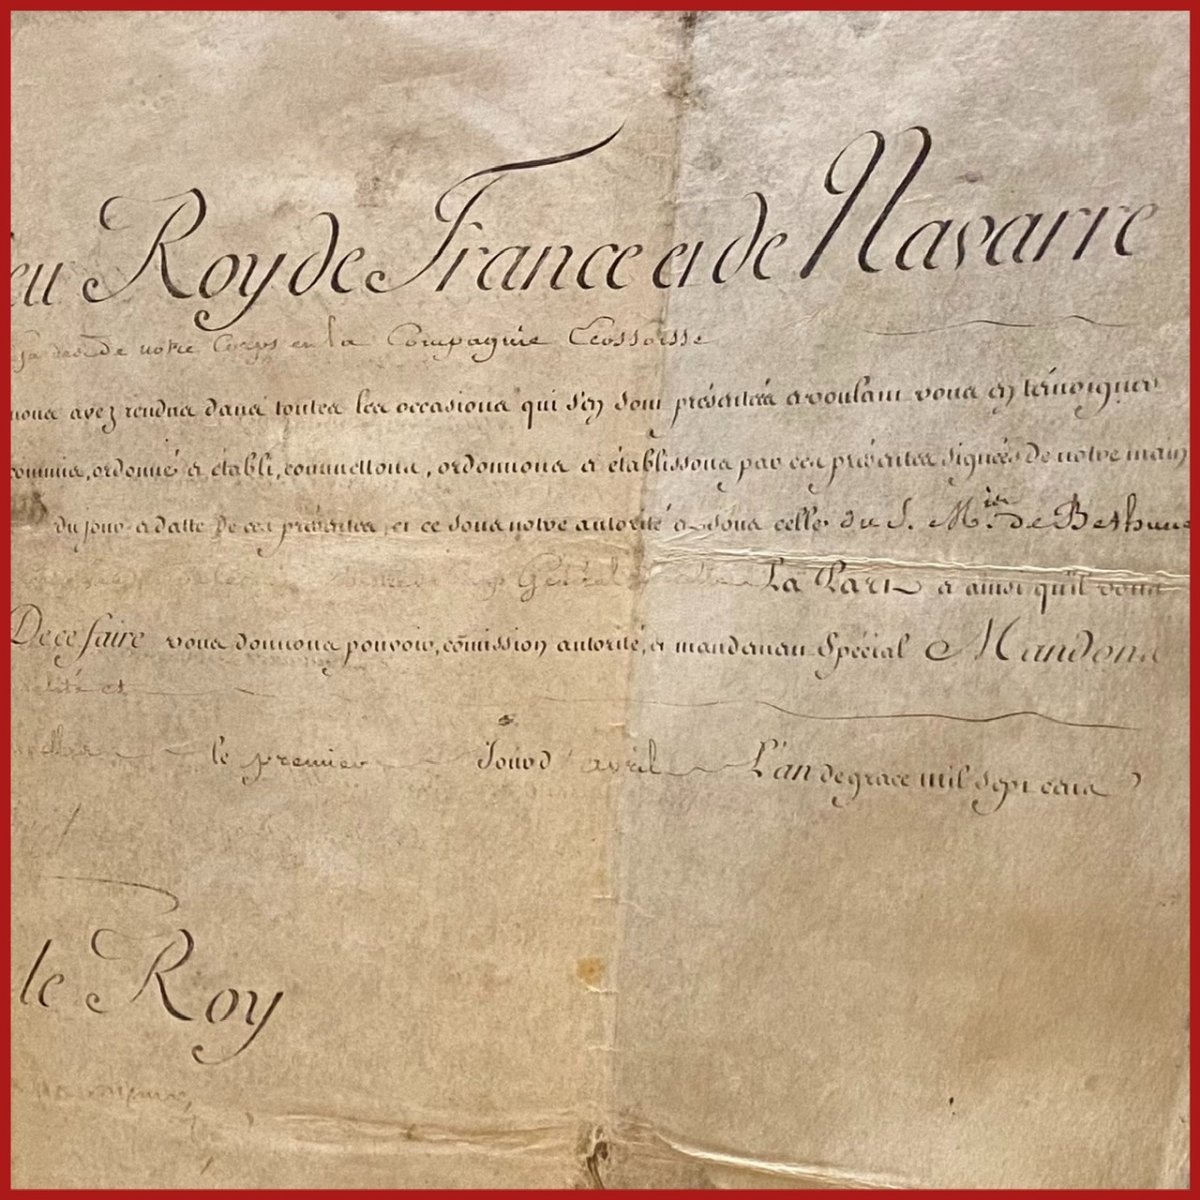 eu Roy de France et de Navarre
de notre Corps en la Compagnie Ecossoisse
nous avez rendus dans toutes les occasions qui s'en sont présentées et voulant vous en témoigner
commis, ordonné et établi, commettons, ordonnons et établissons par ces présentes signées de notre main
du jour et datte de ces présentes, et ce sous notre autorité et sous celle du S. M.is de Bethune
Général La Part et ainsi qu'il vous
De ce faire vous donnons pouvoir, cõmission autorité, et mandement Spécial Mandons
et
le premier Jour d'avril L'an de grace mil sept cens
le Roy